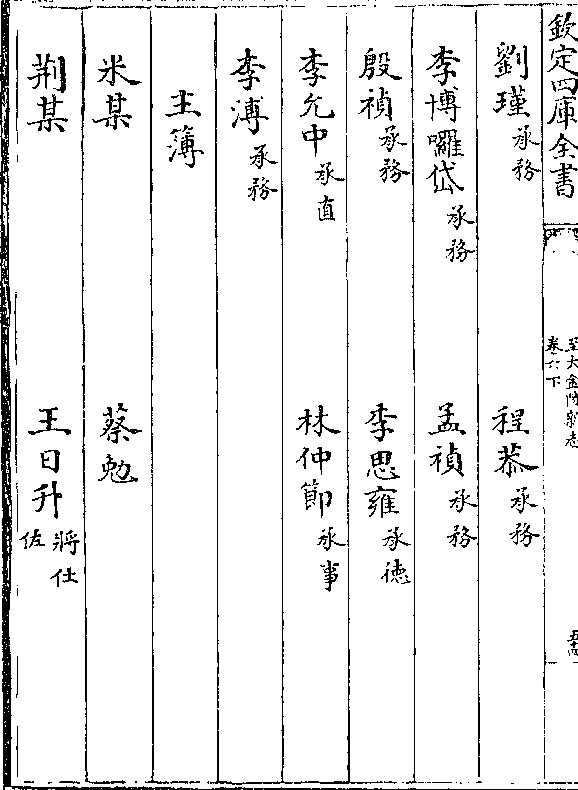 欽定四庫全書
至大金陵新志
卷六下
五十四
劉瑾承務 程恭承務
李博囉岱承務 孟禎承務
殷禎承務 李思雍承德
李允中承直 林仲節承事
李溥承務
主簿
米某 蔡勉
荆某 王日升將仕佐